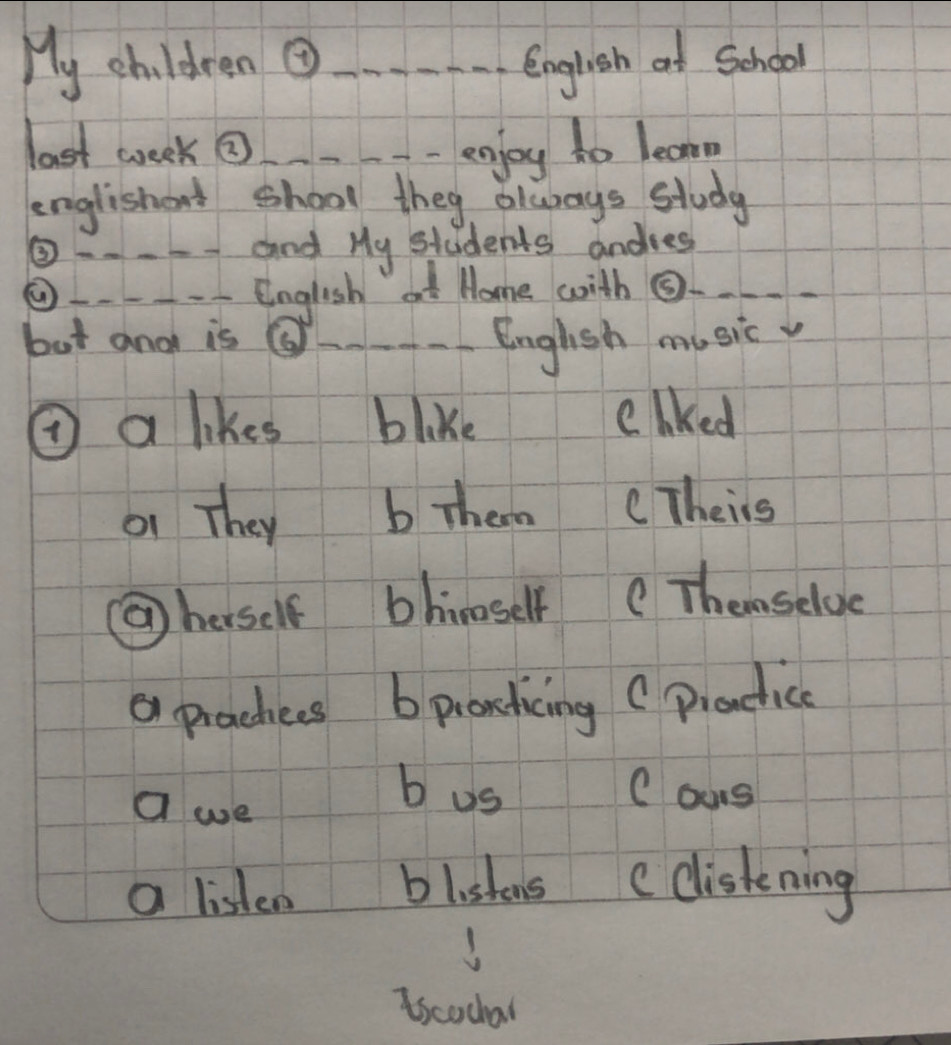 My children ① ------- English at School
last week ② ------ enjoy to learn
englishat shool they always study
③ ----- and My students andres
④ ------ English at Home with ⑤ -----
but ana is ⑥ ------ English music
① a likes b like c liked
a They b Them c Theirs
ⓐ herself b himself c Themselve
a practices b practicing c practice
a we b us c ours
a listen b listens c listening
↓
Escuchar